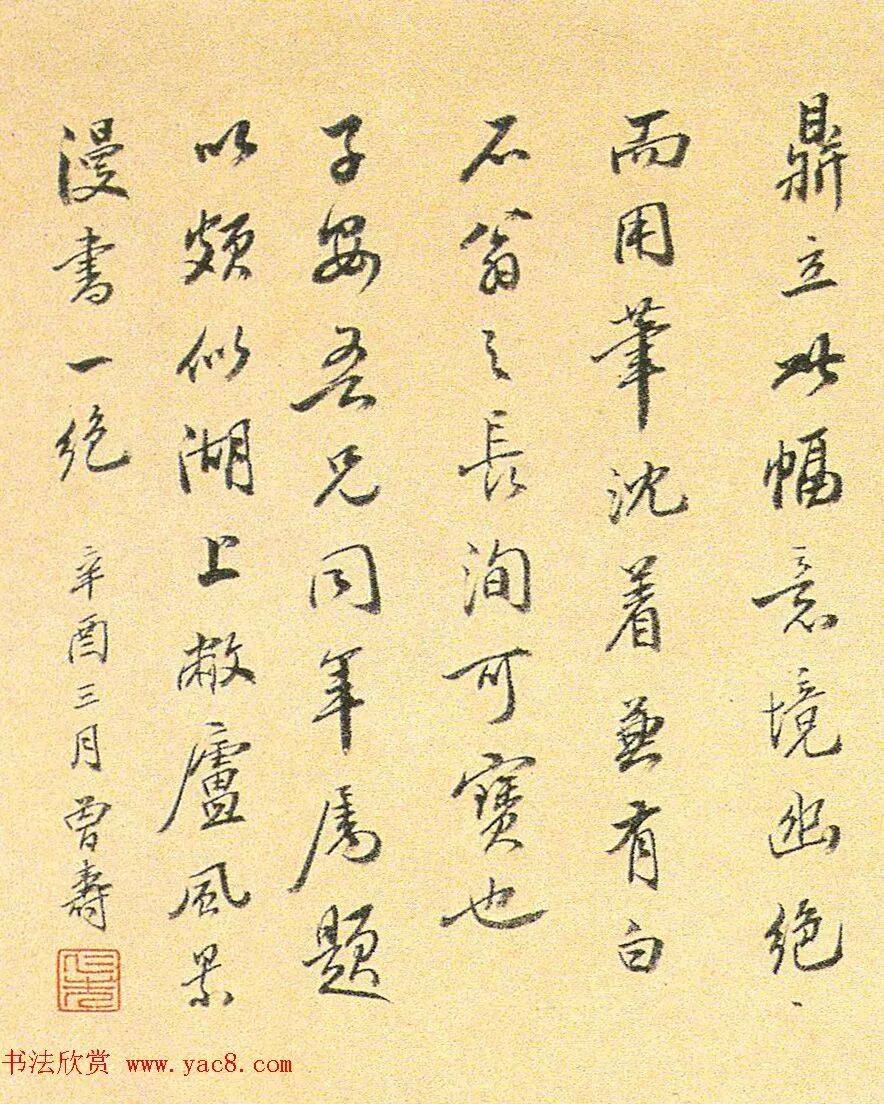 鼎立此幅意境幽絕
而用筆沈着兼有白
石翁之長洵可寶也
子安吾兄同年屬題
以頗似湖上敝廬風景
漫書一絕
辛酉三月曾壽
书法欣赏 www.yac8.com